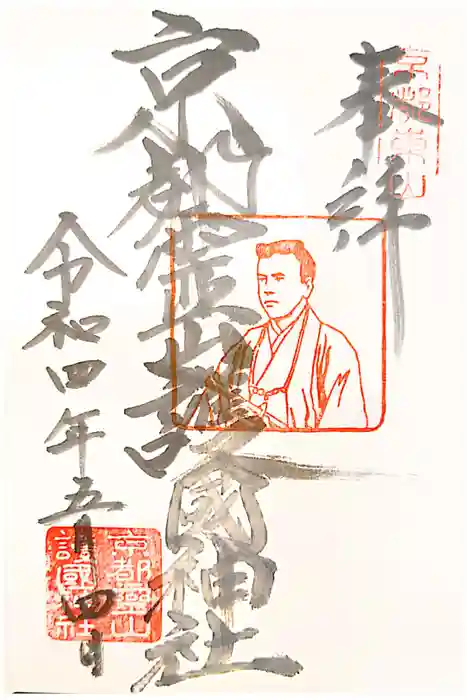 奉拝
京都東山
京都霊山護國神社
令和四年五月十四日
京都靈山
護國神社